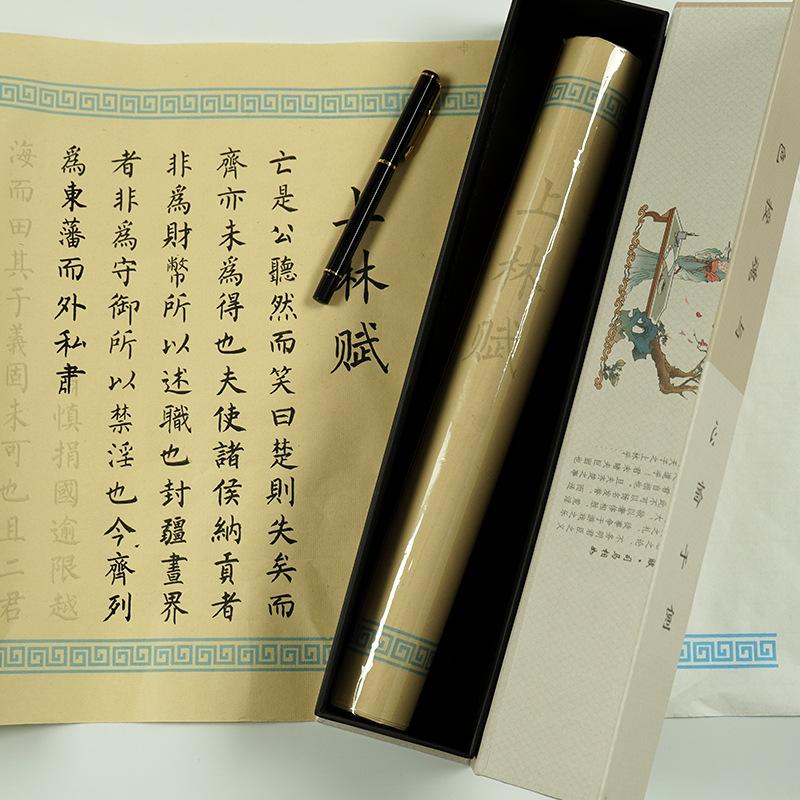 上林赋
亡是公聽然而笑曰楚則失矣而
齊亦未爲得也夫使諸侯納貢者
非爲財幣所以述職也封疆畫界
者非爲守御所以禁淫也今齊列
爲東藩而外私肅慎捐國逾限越
海而田其于義固未可也且二君
上林赋
色授魂与心愉于侧